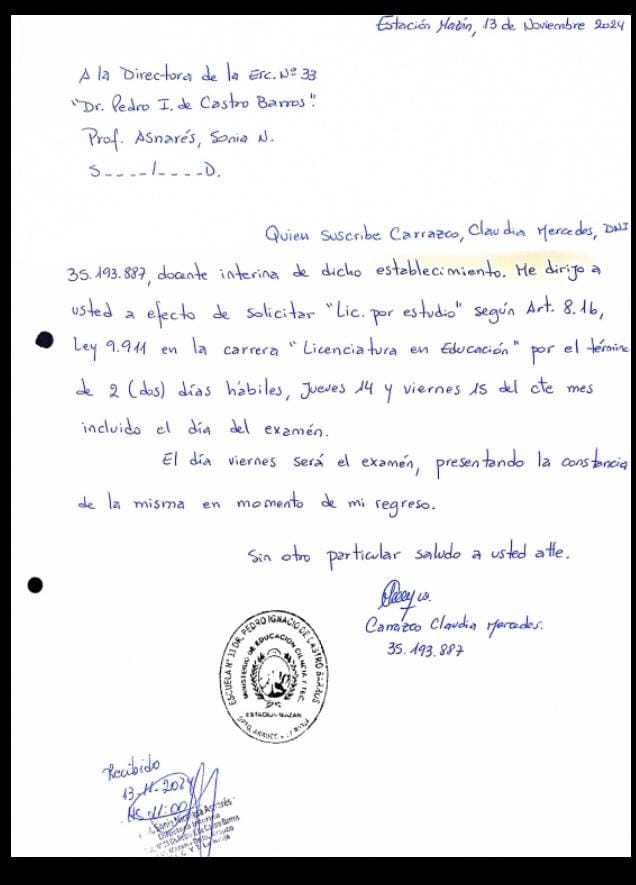 Estación Mazán, 13 de Noviembre 2024
A la Directora de la Esc. Nº 33
"Dr. Pedro I. de Castro Barros".
Prof. Asnarés, Sonia N.
S----/----D.
Quien suscribe Carrazco, Claudia Mercedes, DNI
35.193.887, docente interina de dicho establecimiento. Me dirijo a
usted a efecto de solicitar "Lic. por estudio" según Art. 8.16,
Ley 9.911 en la carrera "Licenciatura en Educación" por el término
de 2 (dos) días hábiles, Jueves 14 y viernes 15 del cte mes
incluido el día del examén.
El día viernes será el examén, presentando la constancia
de la misma en momento de mi regreso.
Sin otro particular saludo a usted atte.
Carrazco Claudia Mercedes.
35.193.887
ESCUELA Nº 33 DR. PEDRO IGNACIO DE CASTRO BARROS
MINISTERIO DE EDUCACION CIENCIA Y TEC.
ESTACION MAZAN
DPTO. ARAUCO - LA RIOJA
Recibido
13-11-2024
HS 11:00
Sonia Nicolasa Asnarés
Directora Interina